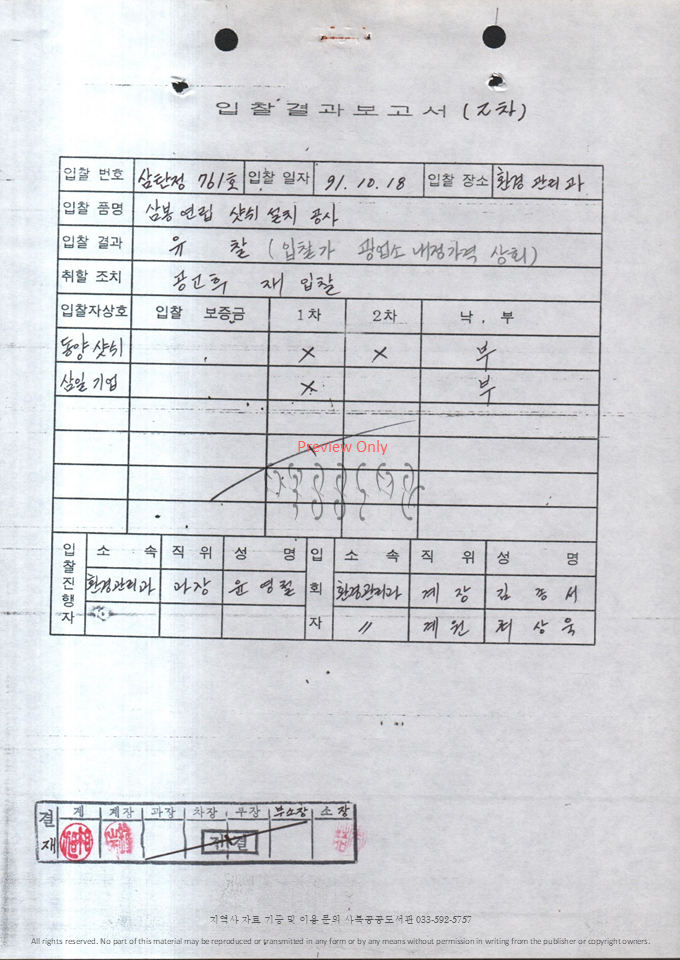 입찰결과보고서(2차)
입찰 번호 삼탄정 761호 입찰 일자 91. 10. 18 입찰 장소 환경관리과
입찰 품명 삼봉연립 샷쉬 설치 공사
입찰 결과 유 찰 (입찰가 광업소 내정가격 상회)
취할 조치 공고후 재 입찰
입찰자상호 입찰 보증금 1차 2차 낙 . 부
동양 샷쉬 × × 부
삼일 기업 × 부
Preview Only
입찰진행자 소 속 직 위 성 명 입회자 소 속 직 위 성 명
환경관리과 과장 윤영철 환경관리과 계 장 김 종 서
〃 계 원 최 상 욱
결재 계 계장 과장 차장 부장 부소장 소장
전결
지역사 자료 기증 및 이용 문의 사북공공도서관 033-592-5757
All rights reserved. No part of this material may be reproduced or transmitted in any form or by any means without permission in writing from the publisher or copyright owners.